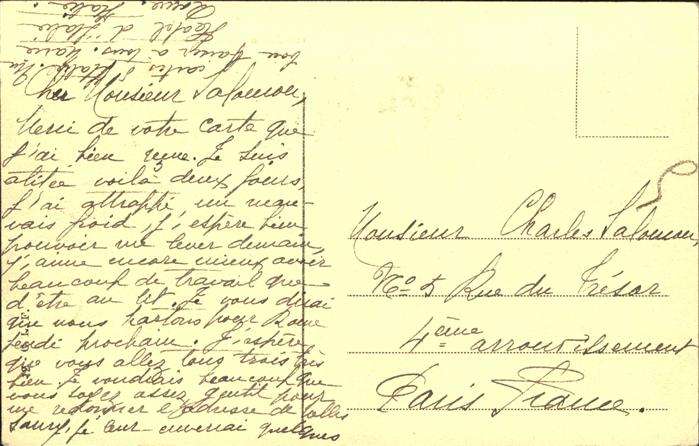 Cher Monsieur Salomon,
Merci de votre carte que
j'ai bien reçue. Je suis
alitée voilà deux jours,
j'ai attrappé un mau-
vais froid, j'espère bien
pouvoir me lever demain,
j'aime encore mieux avoir
beaucoup de travail que
d'être au lit. Je vous dirai
que nous partons pour Rome
jeudi prochain. J'espère
que vous allez tous trois très
bien. Je voudrais beaucoup que
vous soyez assez gentil pour
me redonner l'adresse de
je leur enverrai quelques
cartes d'Italie.
bonjour à tous. Marie
Hotel d'Italie
Rome. Italie.
Monsieur Charles Salomon,
No 5 Rue du Trésor
4ème arrondissement
Paris France.